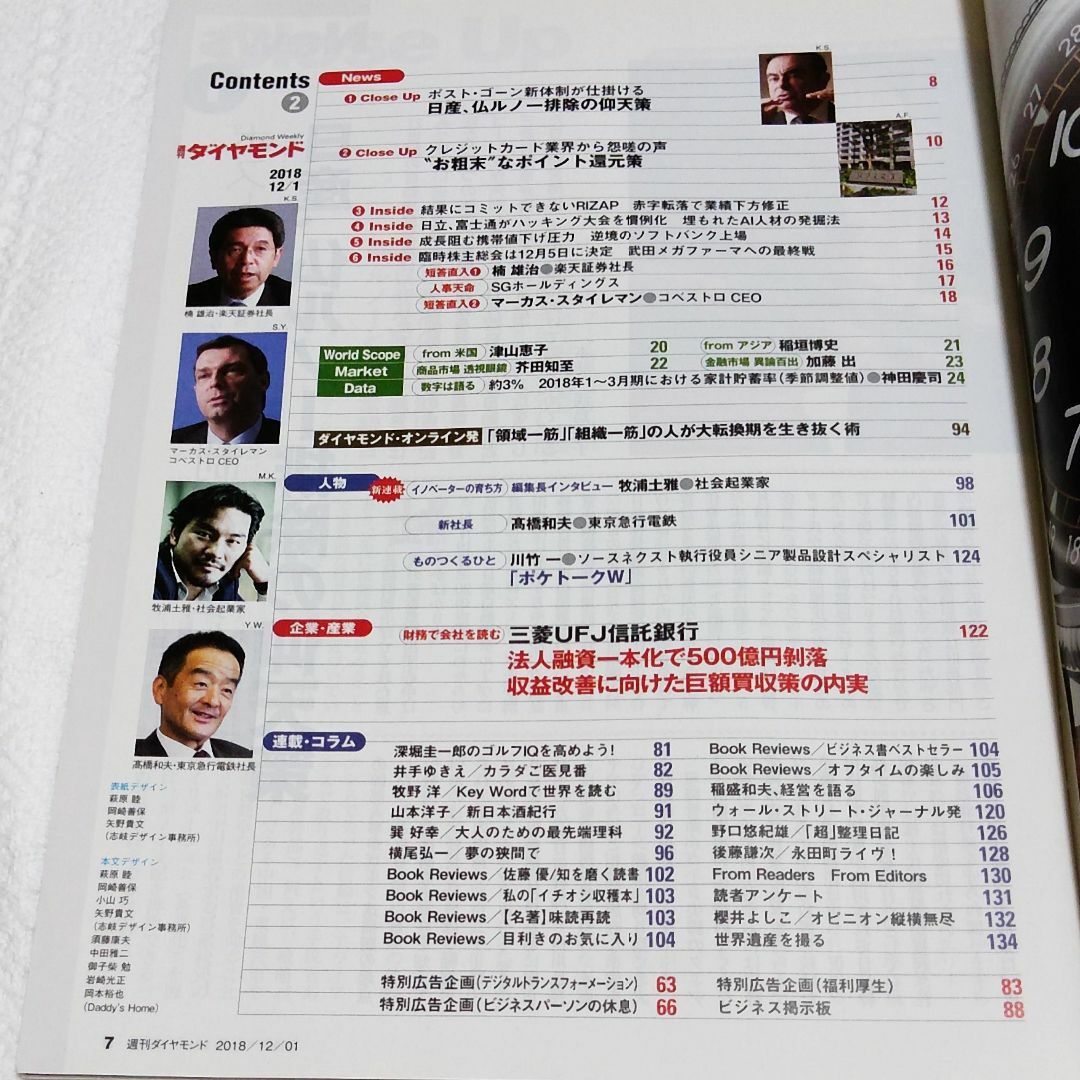 Contents
2
News
K.S.
① Close Up ポスト・ゴーン新体制が仕掛ける 8
日産、仏ルノー排除の仰天策
A.F.
② Close Up クレジットカード業界から怨嗟の声 10
“お粗末”なポイント還元策
Diamond Weekly
週刊ダイヤモンド
2018
12/1
K.S.
楠 雄治・楽天証券社長
S.Y.
マーカス・スタイレマン
コベストロ CEO
M.K.
牧浦土雅・社会起業家
Y.W.
髙橋和夫・東京急行電鉄社長
③ Inside 結果にコミットできないRIZAP 赤字転落で業績下方修正 12
④ Inside 日立、富士通がハッキング大会を慣例化 埋もれたAI人材の発掘法 13
⑤ Inside 成長阻む携帯値下げ圧力 逆境のソフトバンク上場 14
⑥ Inside 臨時株主総会は12月5日に決定 武田メガファーマへの最終戦 15
短答直入① 楠 雄治●楽天証券社長 16
人事天命 SGホールディングス 17
短答直入② マーカス・スタイレマン●コベストロ CEO 18
World Scope from 米国 津山恵子 20 from アジア 稲垣博史 21
Market 商品市場 透視眼鏡 芥田知至 22 金融市場 異論百出 加藤 出 23
Data 数字は語る 約3% 2018年1〜3月期における家計貯蓄率（季節調整値）●神田慶司 24
ダイヤモンド・オンライン発 「領域一筋」「組織一筋」の人が大転換期を生き抜く術 94
人物 新連載 イノベーターの育ち方 編集長インタビュー 牧浦土雅●社会起業家 98
新社長 髙橋和夫●東京急行電鉄 101
ものつくるひと 川竹 一●ソースネクスト執行役員シニア製品設計スペシャリスト 124
「ポケトークW」
企業・産業 財務で会社を読む 三菱UFJ信託銀行 122
法人融資一本化で500億円剝落
収益改善に向けた巨額買収策の内実
連載・コラム
深堀圭一郎のゴルフIQを高めよう! 81
井手ゆきえ／カラダご医見番 82
牧野 洋／Key Wordで世界を読む 89
山本洋子／新日本酒紀行 91
巽 好幸／大人のための最先端理科 92
横尾弘一／夢の狭間で 96
Book Reviews／佐藤 優/知を磨く読書 102
Book Reviews／私の「イチオシ収穫本」 103
Book Reviews／【名著】味読再読 103
Book Reviews／目利きのお気に入り 104
Book Reviews／ビジネス書ベストセラー 104
Book Reviews／オフタイムの楽しみ 105
稲盛和夫、経営を語る 106
ウォール・ストリート・ジャーナル発 120
野口悠紀雄／「超」整理日記 126
後藤謙次／永田町ライヴ！ 128
From Readers From Editors 130
読者アンケート 131
櫻井よしこ／オピニオン縦横無尽 132
世界遺産を撮る 134
特別広告企画（デジタルトランスフォーメーション） 63
特別広告企画（ビジネスパーソンの休息） 66
特別広告企画（福利厚生） 83
ビジネス掲示板 88
表紙デザイン
萩原 睦
岡崎善保
矢野貴文
（志岐デザイン事務所）
本文デザイン
萩原 睦
岡崎善保
小山 巧
矢野貴文
（志岐デザイン事務所）
須藤康夫
中田雅二
御子柴 勉
岩崎光正
岡本裕也
(Daddy's Home)
7 週刊ダイヤモンド 2018／12／01
28
27
10
9
8
7
18